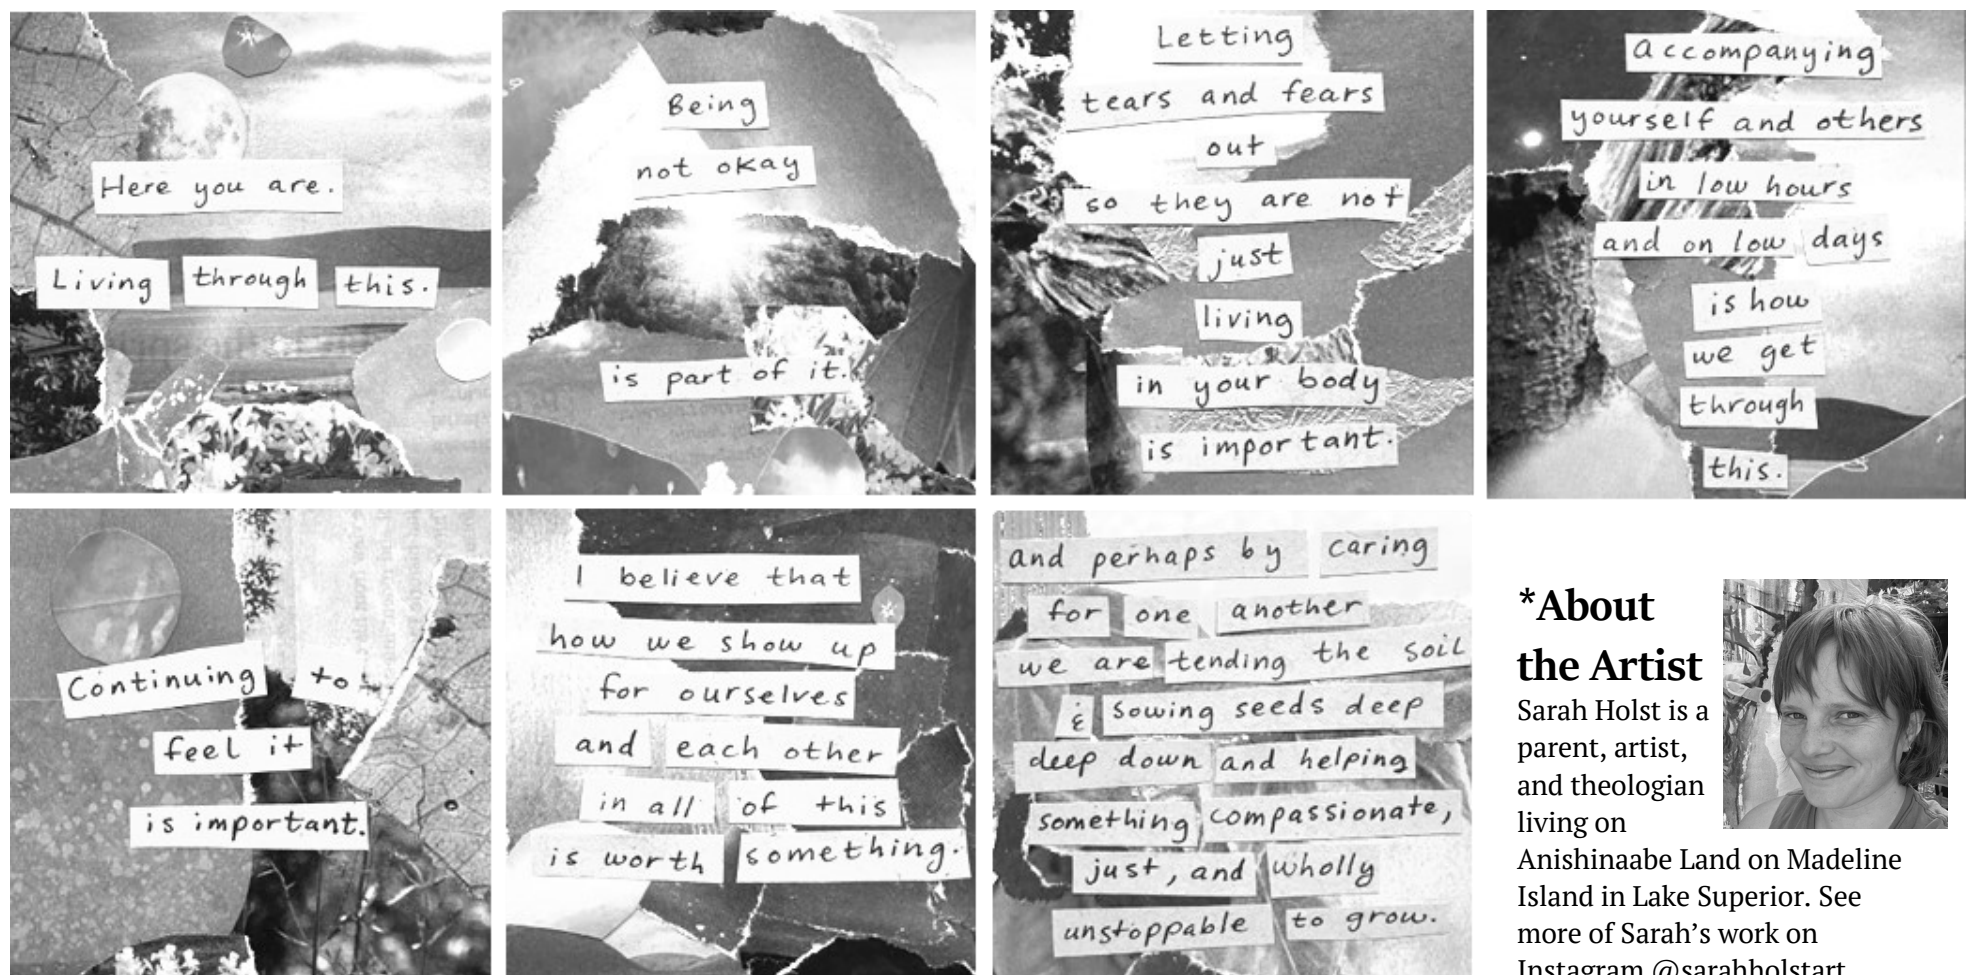 Here you are.
Living through this.
Being
not okay
is part of it.
Letting
tears and fears
out
so they are not
just
living
in your body
is important.
accompanying
yourself and others
in low hours
and on low days
is how
we get
through
this.
Continuing to
feel it
is important.
I believe that
how we show up
for ourselves
and each other
in all of this
is worth something.
and perhaps by caring
for one another
we are tending the soil
& sowing seeds deep
deep down and helping
something compassionate,
just, and wholly
unstoppable to grow.
*About
the Artist
Sarah Holst is a
parent, artist,
and theologian
living on
Anishinaabe Land on Madeline
Island in Lake Superior. See
more of Sarah’s work on
Instagram @sarahholstart